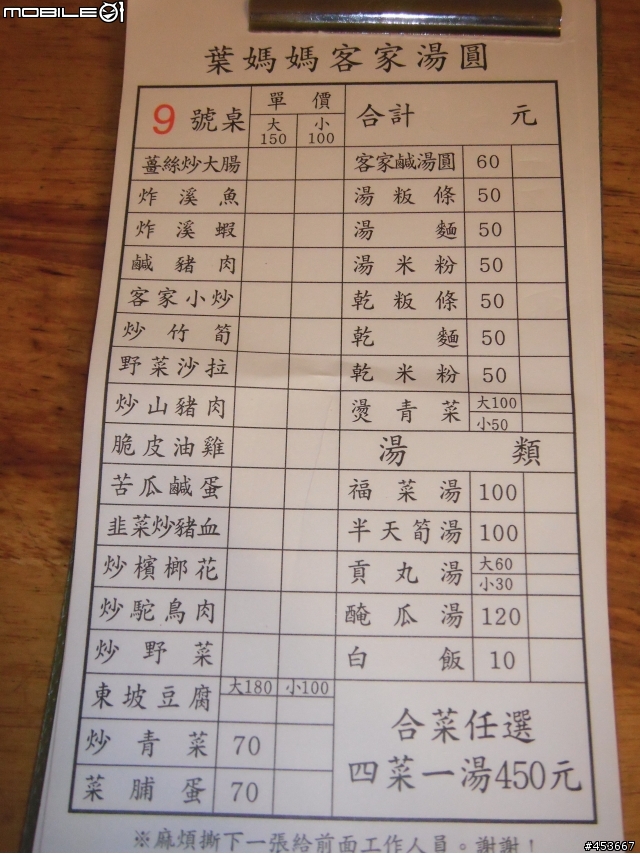 MOBILE01
葉媽媽客家湯圓
9 號桌 單價 大150 小100 合計 元
薑絲炒大腸 客家鹹湯圓 60
炸溪魚 湯粄條 50
炸溪蝦 湯麵 50
鹹豬肉 湯米粉 50
客家小炒 乾粄條 50
炒竹筍 乾麵 50
野菜沙拉 乾米粉 50
炒山豬肉 燙青菜 大100 小50
脆皮油雞 湯類
苦瓜鹹蛋 福菜湯 100
韭菜炒豬血 半天筍湯 100
炒檳榔花 貢丸湯 大60 小30
炒駝鳥肉 醃瓜湯 120
炒野菜 白飯 10
東坡豆腐 大180 小100
炒青菜 70
菜脯蛋 70
合菜任選
四菜一湯450元
※麻煩撕下一張給前面工作人員。謝謝!
#453667